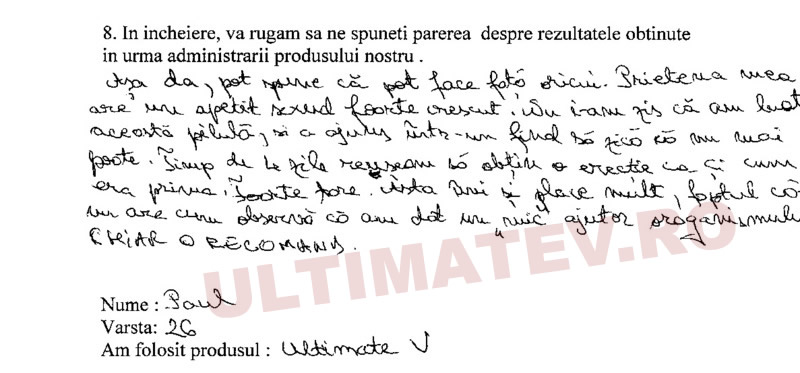 8. In incheiere, va rugam sa ne spuneti parerea despre rezultatele obtinute
in urma administrarii produsului nostru .
Așa da, pot spune că pot face față oricui. Prietena mea
are un apetit sexual foarte crescut. Nu i-am zis că am luat
această pilulă, și a ajuns într-un final să zică că nu mai
poate. Timp de 4 zile reușeam să obțin o erecție ca și cum
era prima. Foarte tare. Asta îmi place mult, faptul că
nu are cum observă că am dat un "mic" ajutor oroganismului
CHIAR O RECOMAND.
ULTIMATEV.RO
Nume : Paul
Varsta: 26
Am folosit produsul : Ultimate V